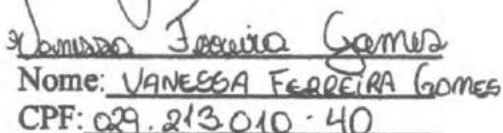 Vanessa Ferreira Gomes
Nome: VANESSA FERREIRA GOMES
CPF: 029.213.010-40